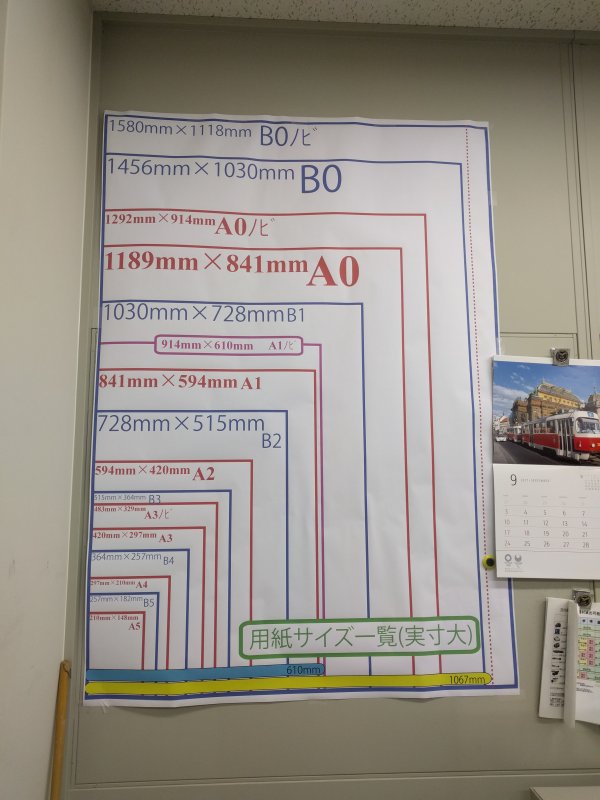 1580mm×1118mm B0ノビ
1456mm×1030mm B0
1292mm×914mm A0ノビ
1189mm×841mm A0
1030mm×728mm B1
914mm×610mm A1ノビ
841mm×594mm A1
728mm×515mm B2
594mm×420mm A2
515mm×364mm B3
483mm×329mm A3ノビ
420mm×297mm A3
364mm×257mm B4
297mm×210mm A4
257mm×182mm B5
210mm×148mm A5
用紙サイズ一覧(実寸大)
610mm
1067mm
9
3 4 5 6 7
10 11 12 13 14
17 18 19 20 21
24 25 26 27 28